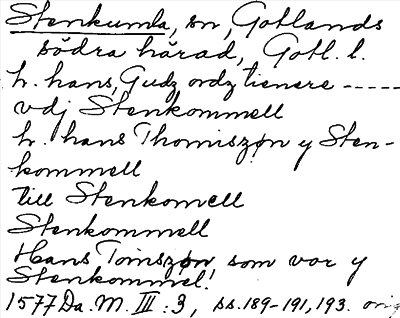 Stenkumla, sn, Gotlands
södra härad, Gotl. l.
h. hans, Gudz ordz tienere -----
vdj Stenkommell
h. hans Thomiszøn y Sten-
kommell
till Stenkomell
Stenkommell
Hans Tomszøn som vor y
Stenkommel!
1577 Da. M. III:3, ss. 189-191, 193. orig